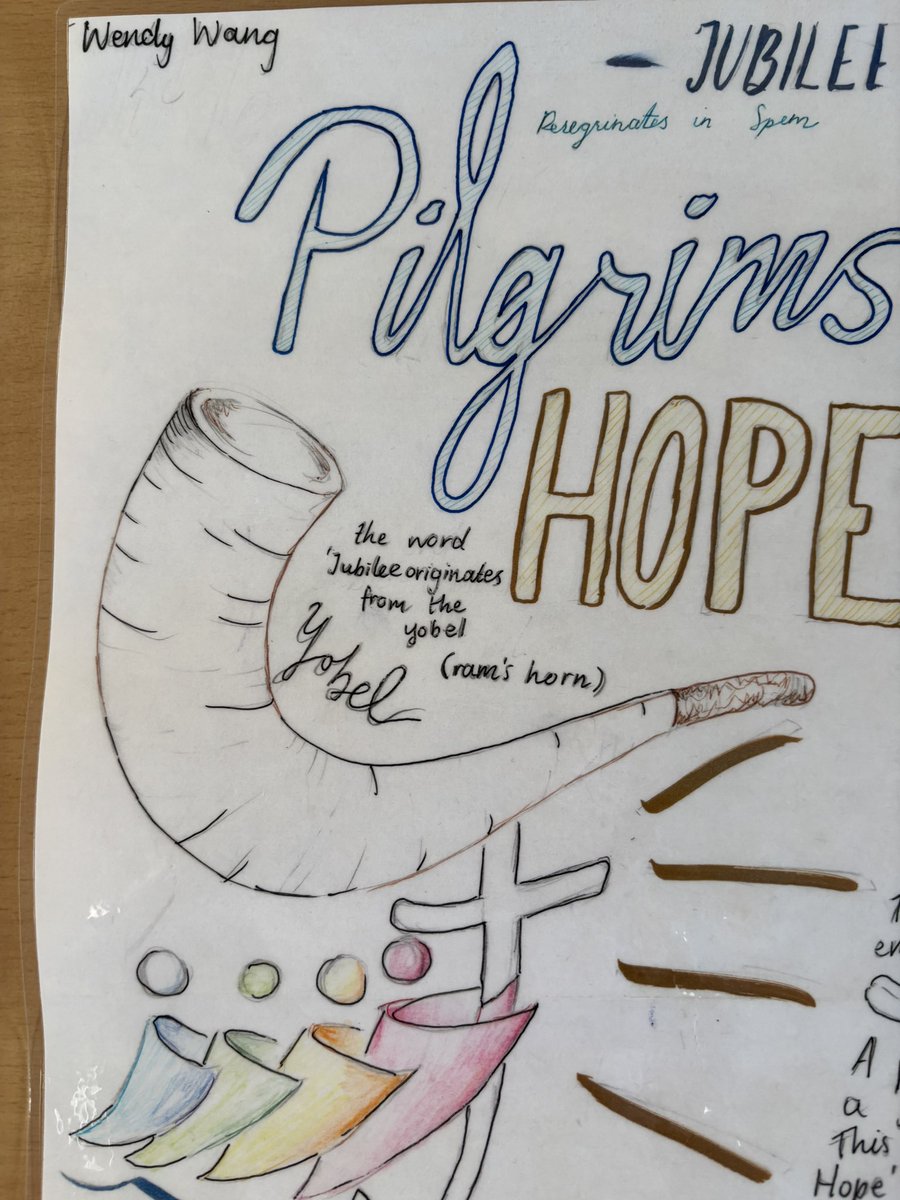 Wendy Wang
- JUBILEE
Peregrinates in Spem
Pilgrims
HOPE
the word
'Jubilee originates
from the
yobel
Yobel
(ram's horn)
A
a
This
Hope'